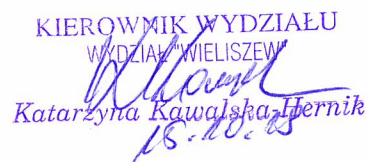 KIEROWNIK WYDZIAŁU
WYDZIAŁ "WIELISZEW"
Katarzyna Kawalska-Hernik